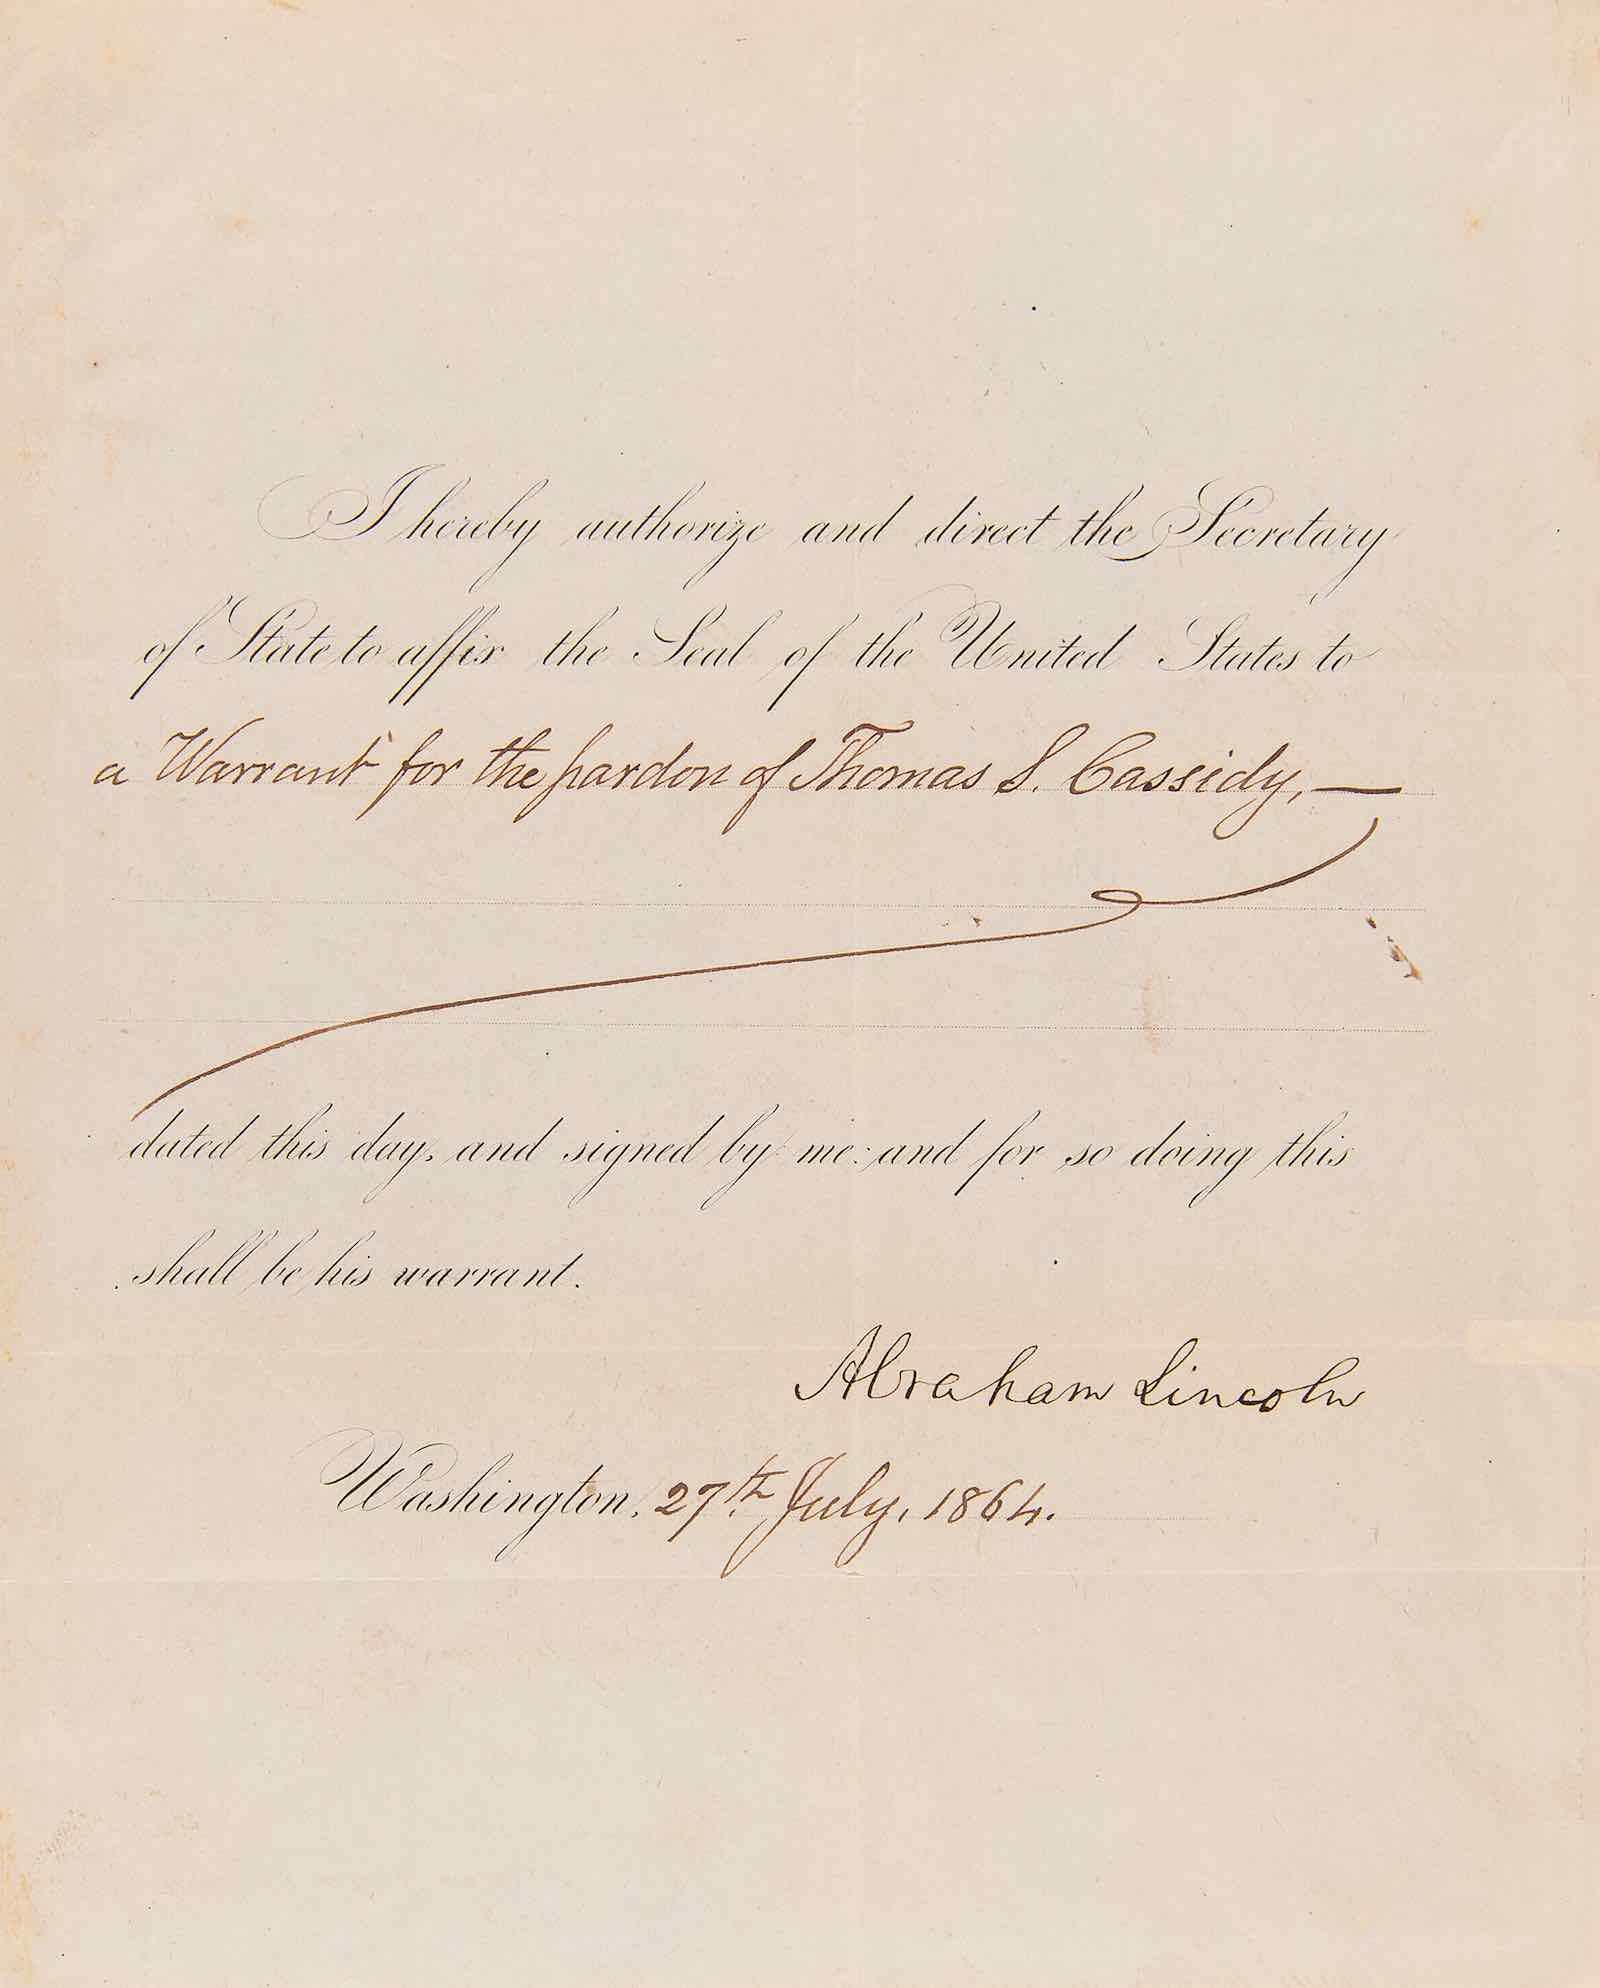 I hereby authorize and direct the Secretary
of State to affix the Seal of the United States to
a Warrant for the pardon of Thomas S. Cassidy, —
dated this day, and signed by me: and for so doing this
shall be his warrant.
Abraham Lincoln
Washington, 27th July, 1864.